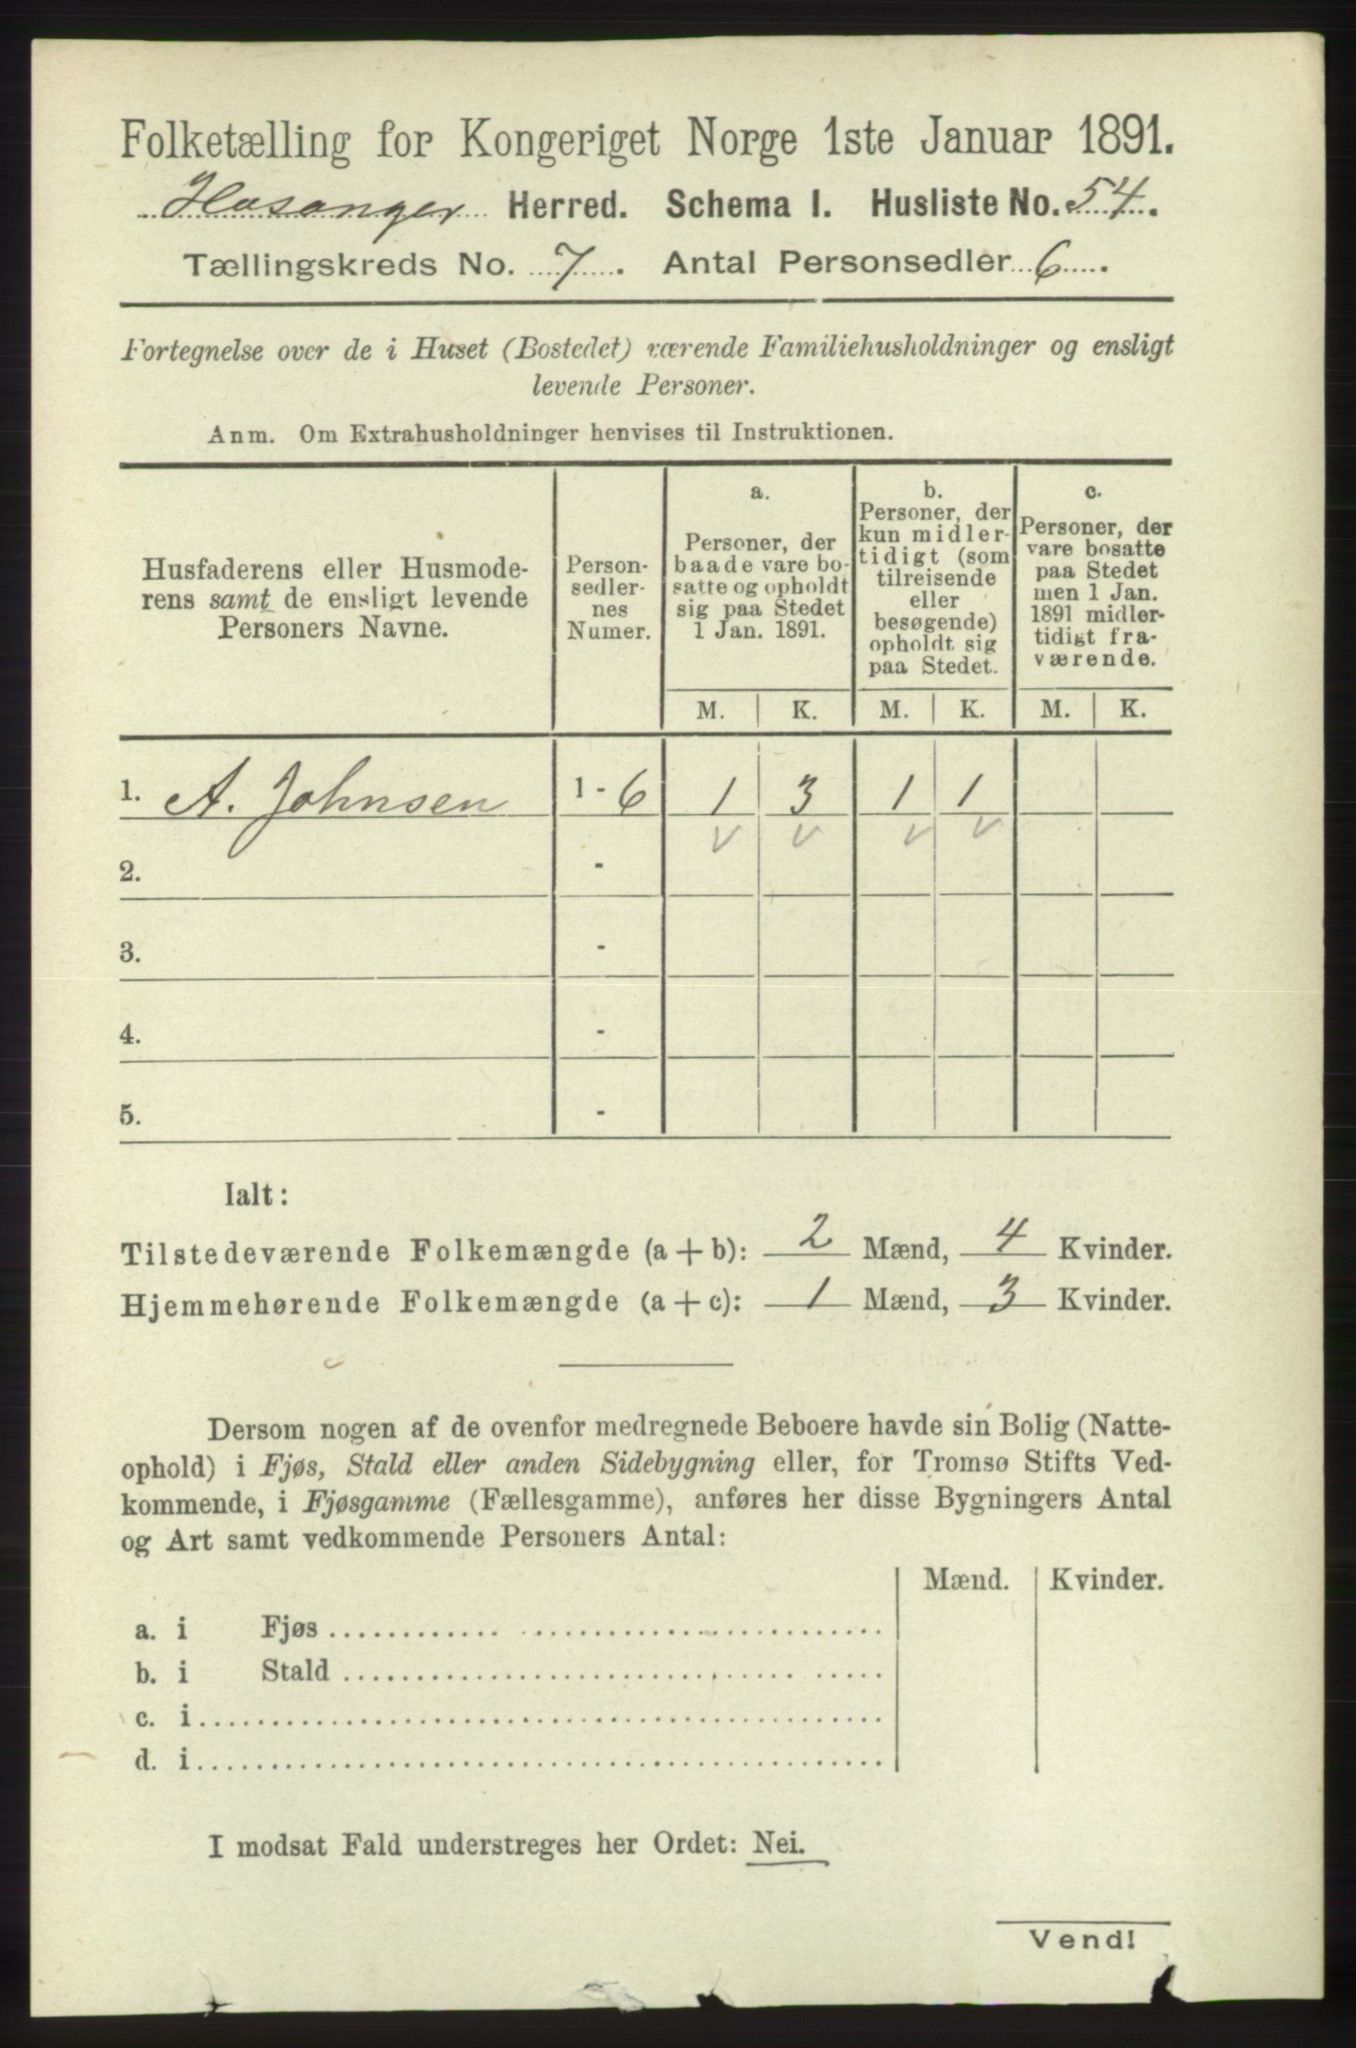 Folketælling for Kongeriget Norge 1ste Januar 1891.
Hosanger Herred. Schema I. Husliste No. 54.
Tællingskreds No. 7. Antal Personsedler 6.
Fortegnelse over de i Huset (Bostedet) værende Familiehusholdninger og ensligt
levende Personer.
Anm. Om Extrahusholdninger henvises til Instruktionen.
Husfaderens eller Husmode-
rens samt de ensligt levende
Personers Navne.
Person-
sedler-
nes
Numer.
a.
Personer, der
baade vare bo-
satte og opholdt
sig paa Stedet
1 Jan. 1891.
b.
Personer, der
kun midler-
tidigt (som
tilreisende
eller
besøgende)
opholdt sig
paa Stedet.
c.
Personer, der
vare bosatte
paa Stedet
men 1 Jan.
1891 midler-
tidigt fra-
værende.
M. K. M. K. M. K.
1. A. Johnsen 1 - 6 1 3 1 1
v v v v
2. -
3. -
4. -
5. -
Ialt:
Tilstedeværende Folkemængde (a + b): 2 Mænd, 4 Kvinder.
Hjemmehørende Folkemængde (a + c): 1 Mænd, 3 Kvinder.
Dersom nogen af de ovenfor medregnede Beboere havde sin Bolig (Natte-
ophold) i Fjøs, Stald eller anden Sidebygning eller, for Tromsø Stifts Ved-
kommende, i Fjøsgamme (Fællesgamme), anføres her disse Bygningers Antal
og Art samt vedkommende Personers Antal:
Mænd. Kvinder.
a. i Fjøs
b. i Stald
c. i
d. i
I modsat Fald understreges her Ordet: Nei.
Vend!